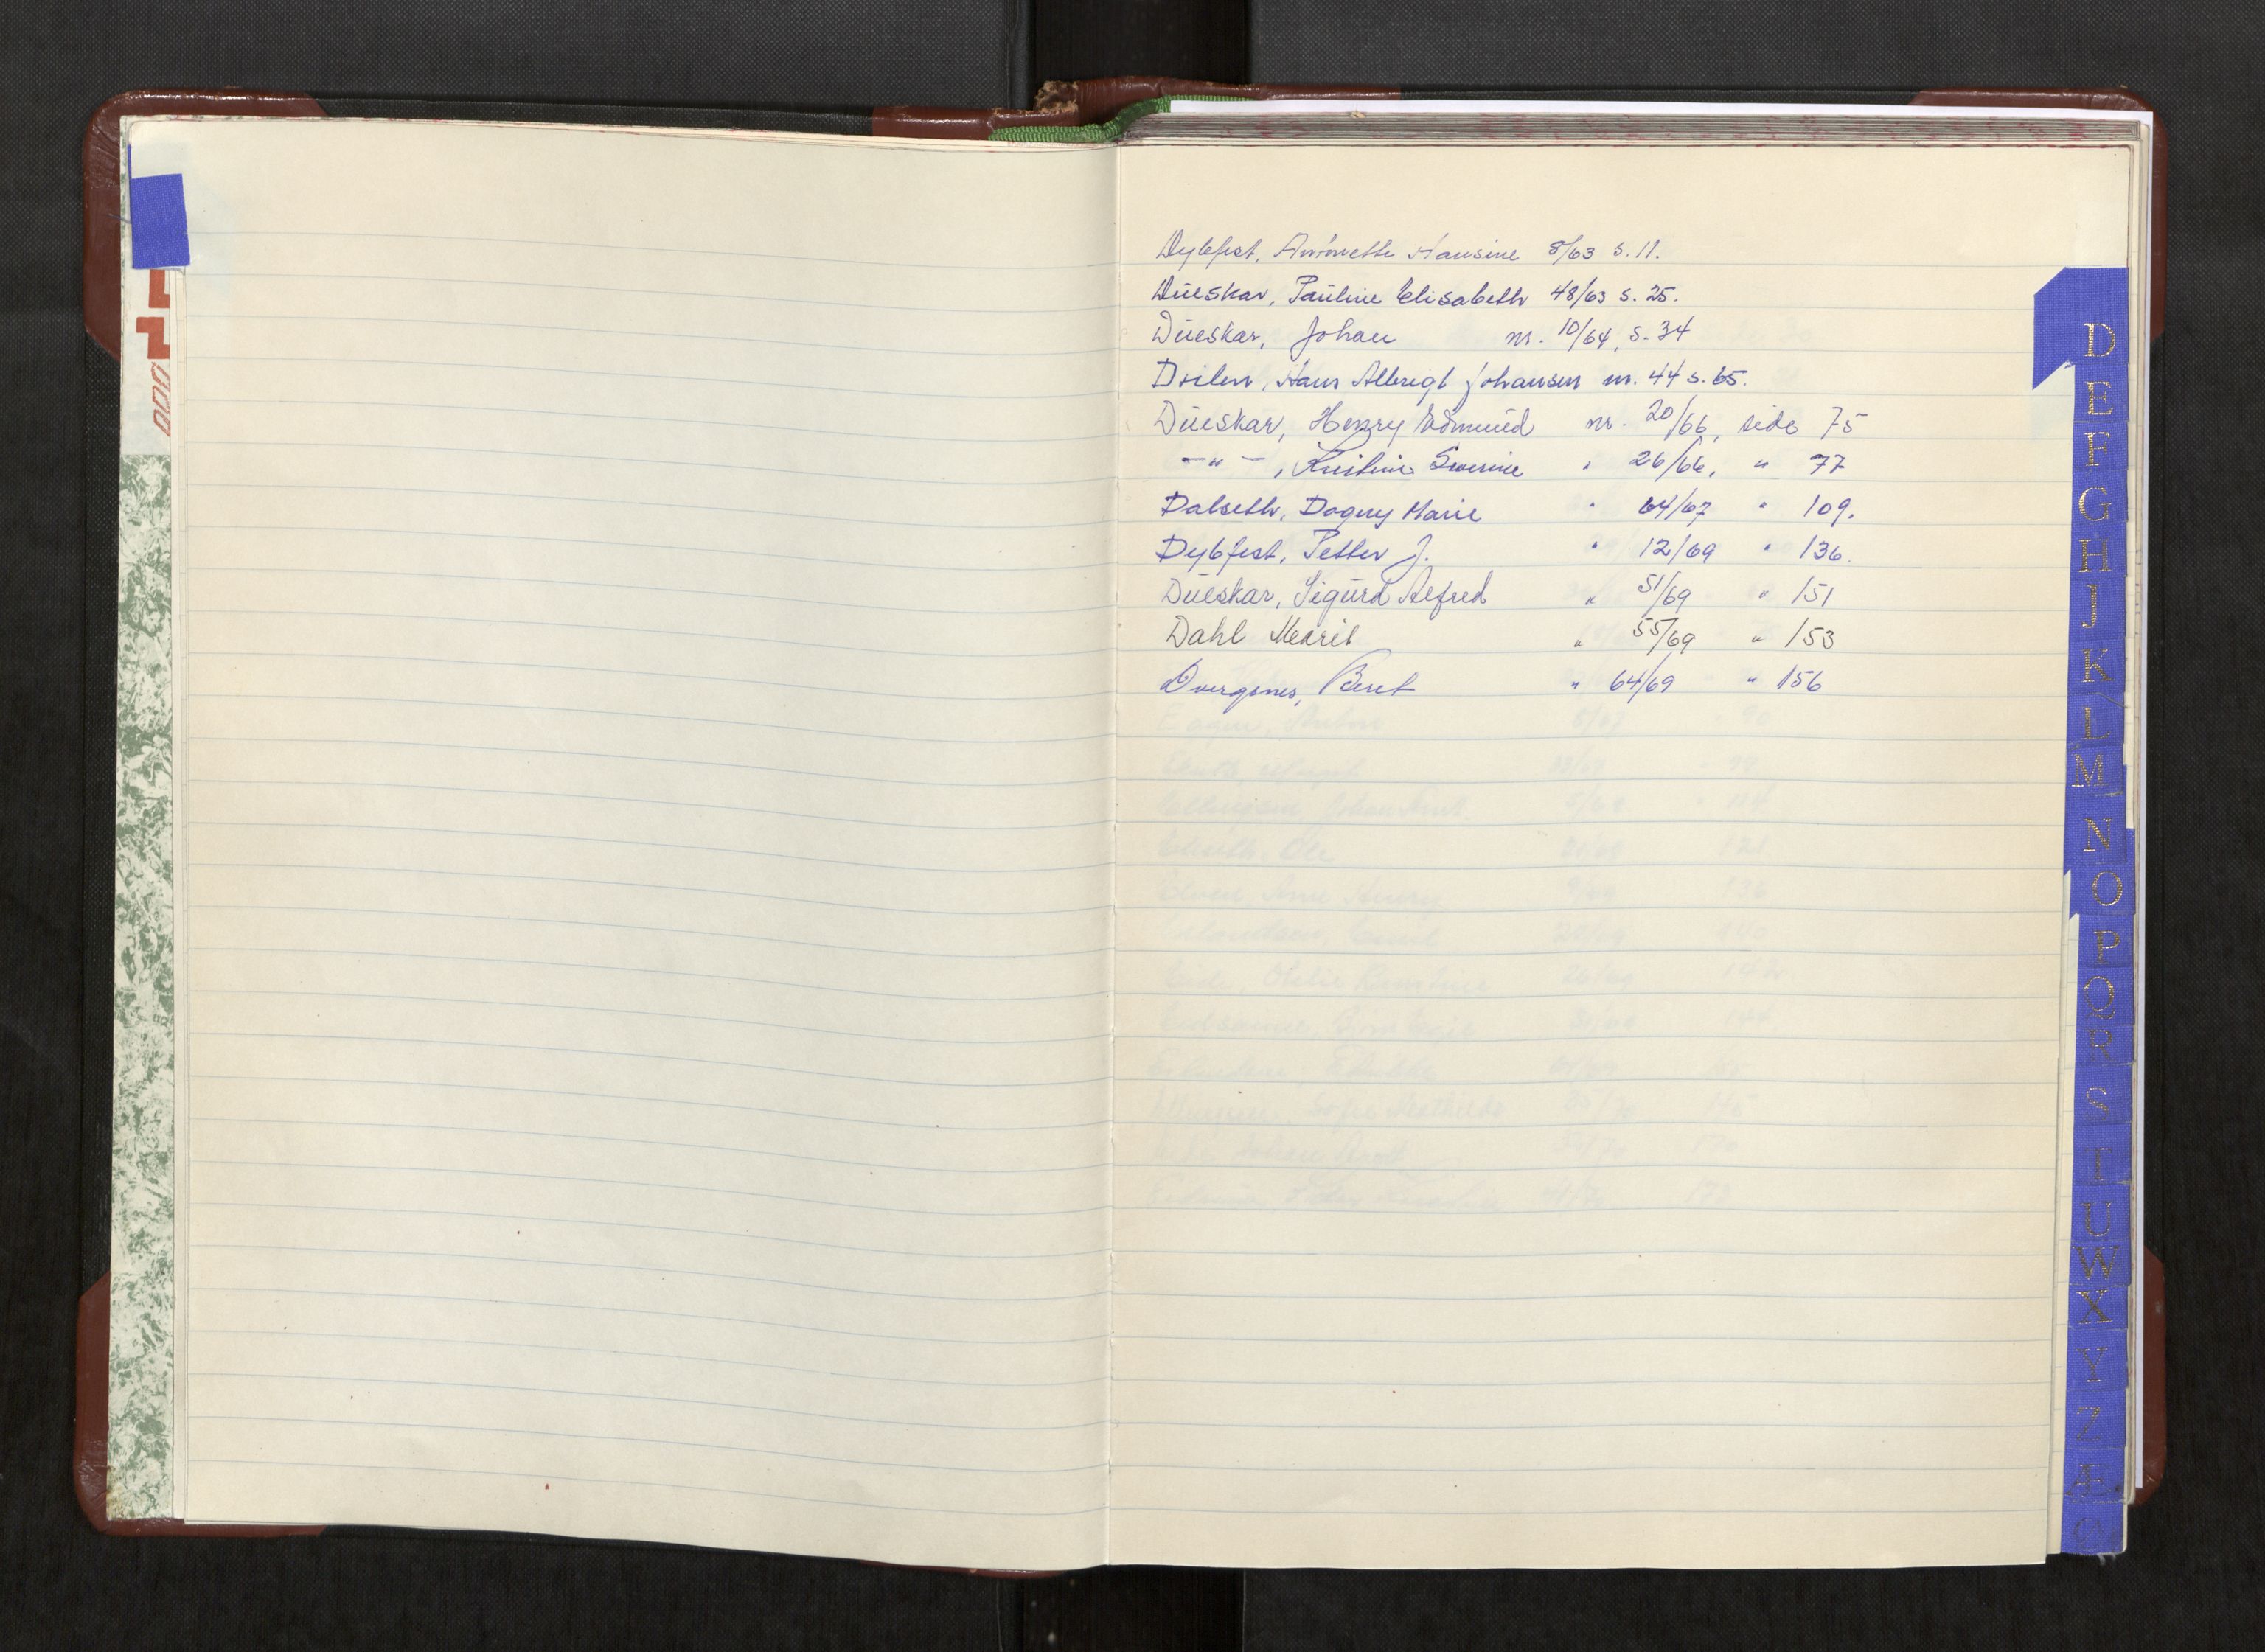 Dybfest, Antonette Hansine 8/63 s. 11.
Dueskar, Pauline Elisabeth 48/63 s. 25.
Dueskar, Johan nr. 10/64, s. 34
Hans Albrigt Johansen nr. 44 s. 65.
Dueskar, Henry Edmund nr. 20/66, side 75
-"-, Kristine Severine " 26/66, " 77
Dalseth, Dagny Marie " 64/67 " 109.
Dybfest, Petter J. " 12/69 " 136.
Dueskar, Sigurd Alfred " 51/69 " 151
Dahl Meärit " 55/69 " 153
Dvergsnes, Beret " 64/69 " 156
D
E
F
G
H
J
K
L
M
N
O
P
Q
R
S
T
U
W
X
Y
Z
Æ
Ø